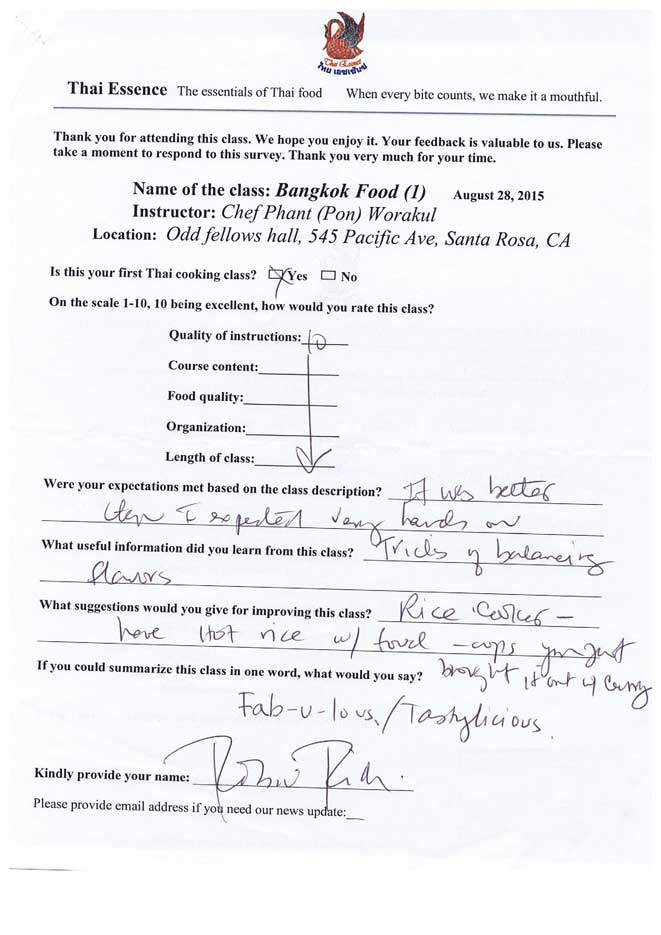 Thai Essence
ไทย เอซเซ้นซ์
Thai Essence The essentials of Thai food When every bite counts, we make it a mouthful.
Thank you for attending this class. We hope you enjoy it. Your feedback is valuable to us. Please
take a moment to respond to this survey. Thank you very much for your time.
Name of the class: Bangkok Food (1) August 28, 2015
Instructor: Chef Phant (Pon) Worakul
Location: Odd fellows hall, 545 Pacific Ave, Santa Rosa, CA
Is this your first Thai cooking class? Yes No
On the scale 1-10, 10 being excellent, how would you rate this class?
Quality of instructions: 10
Course content:
Food quality:
Organization:
Length of class:
Were your expectations met based on the class description? It was better
then I expected very hands on
What useful information did you learn from this class? Tricks of balancing
flavors
What suggestions would you give for improving this class? Rice Cooker –
have Hot rice w/ food – oops you just
If you could summarize this class in one word, what would you say? brought it out w/ Curry
Fab-u-lous / Tastylicious.
Kindly provide your name: Robin
Please provide email address if you need our news update: